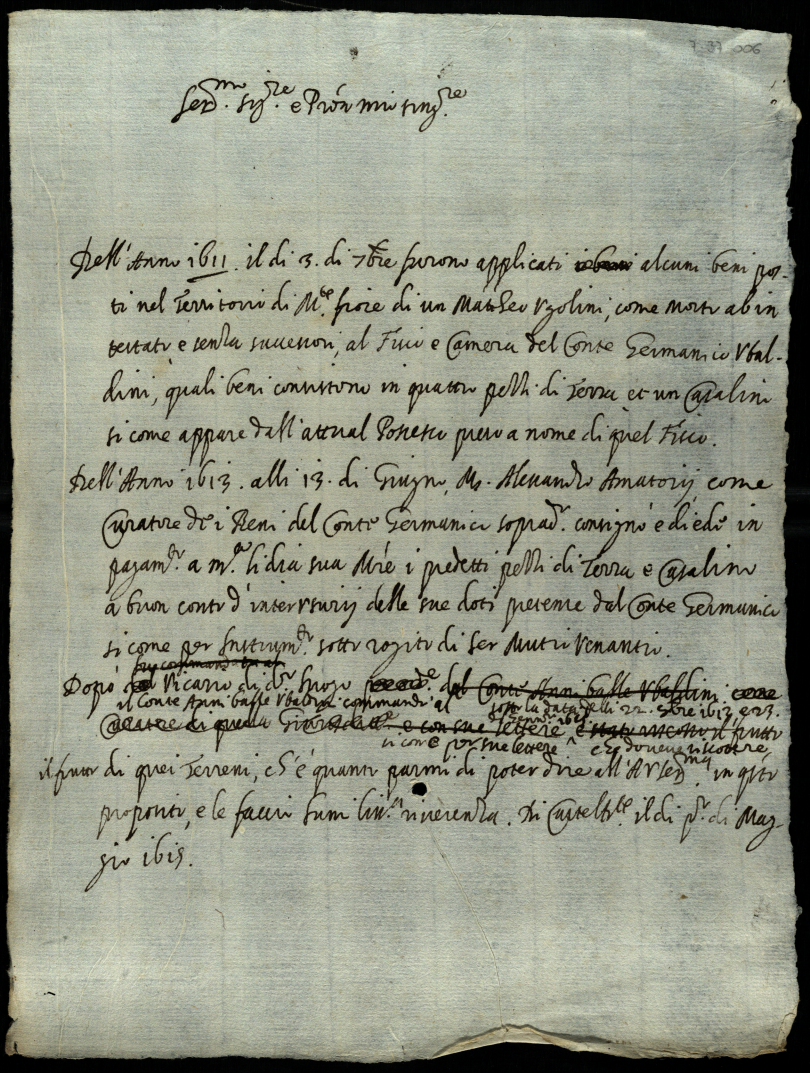 7 37 006
Ser.mo Sig.re e Pròn mio sing.re
Dell'Anno 1611. il di 3. di 7bre furono applicati alcuni beni pos-
ti nel Territorio di M.te fiore di un Mattheo Ugolini, come morto ab in
testato e senza successori, al Fisco e Camera del Conte Germanico Ubal-
dini, quali beni consistono in quattro pezzi di Terra et un Casalino
si come appare dall'attual Possesso preso a nome di quel Fisco.
Dell'Anno 1613. alli 13. di Giugno, M. Alessandro Amatorij come
Curatore de i Beni del Conte Germanico soprad.o consignò e diede in
pagam.to a m.a lidia sua Mre i predetti pezzi di Terra e Casalino
à buon conto d'interusurij delle sue doti pretense dal Conte Germanico
si come per Instrum.to sotto rogito di Ser Mutio Venantio.
Dopò Vicario di d.o luogo dal Conte Anni balle Ubaldini
il Conte Anni balle Ubaldini commandò al sotto la data delli 22. 9bre 1613 e 23.
Curatore di quella e con sue lettere è stato riscosso il frutto
si con e per sue lettere che doveva riscotere
il frutto di quei Terreni, ch'è quanto parmi di poter dire all'A.V. Ser.ma in q.to
proposito, e le faccio humiliss.a riverenza. Di Casteld.te il di p.o di Mag-
gio 1615.